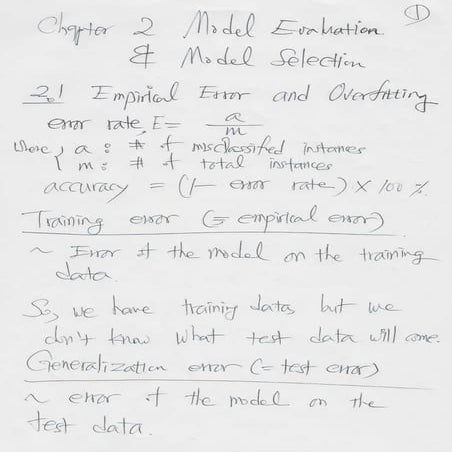 ①
Chapter 2 Model Evaluation
& Model Selection
2.1 Empirical Error and Overfitting
error rate, E = a/m
where, a : # of misclassified instances
m : # of total instances
accuracy = (1 - error rate) × 100 %.
Training error (= empirical error)
~ Error of the model on the training
data.
So, we have training data, but we
don't know what test data will come.
Generalization error (= test error)
~ error of the model on the
test data.